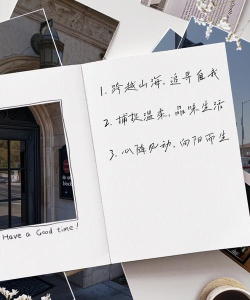 1. 跨越山海，追寻自我
2. 捕捉温柔，品味生活
3. 心随风动，向阳而生
Have a Good time!